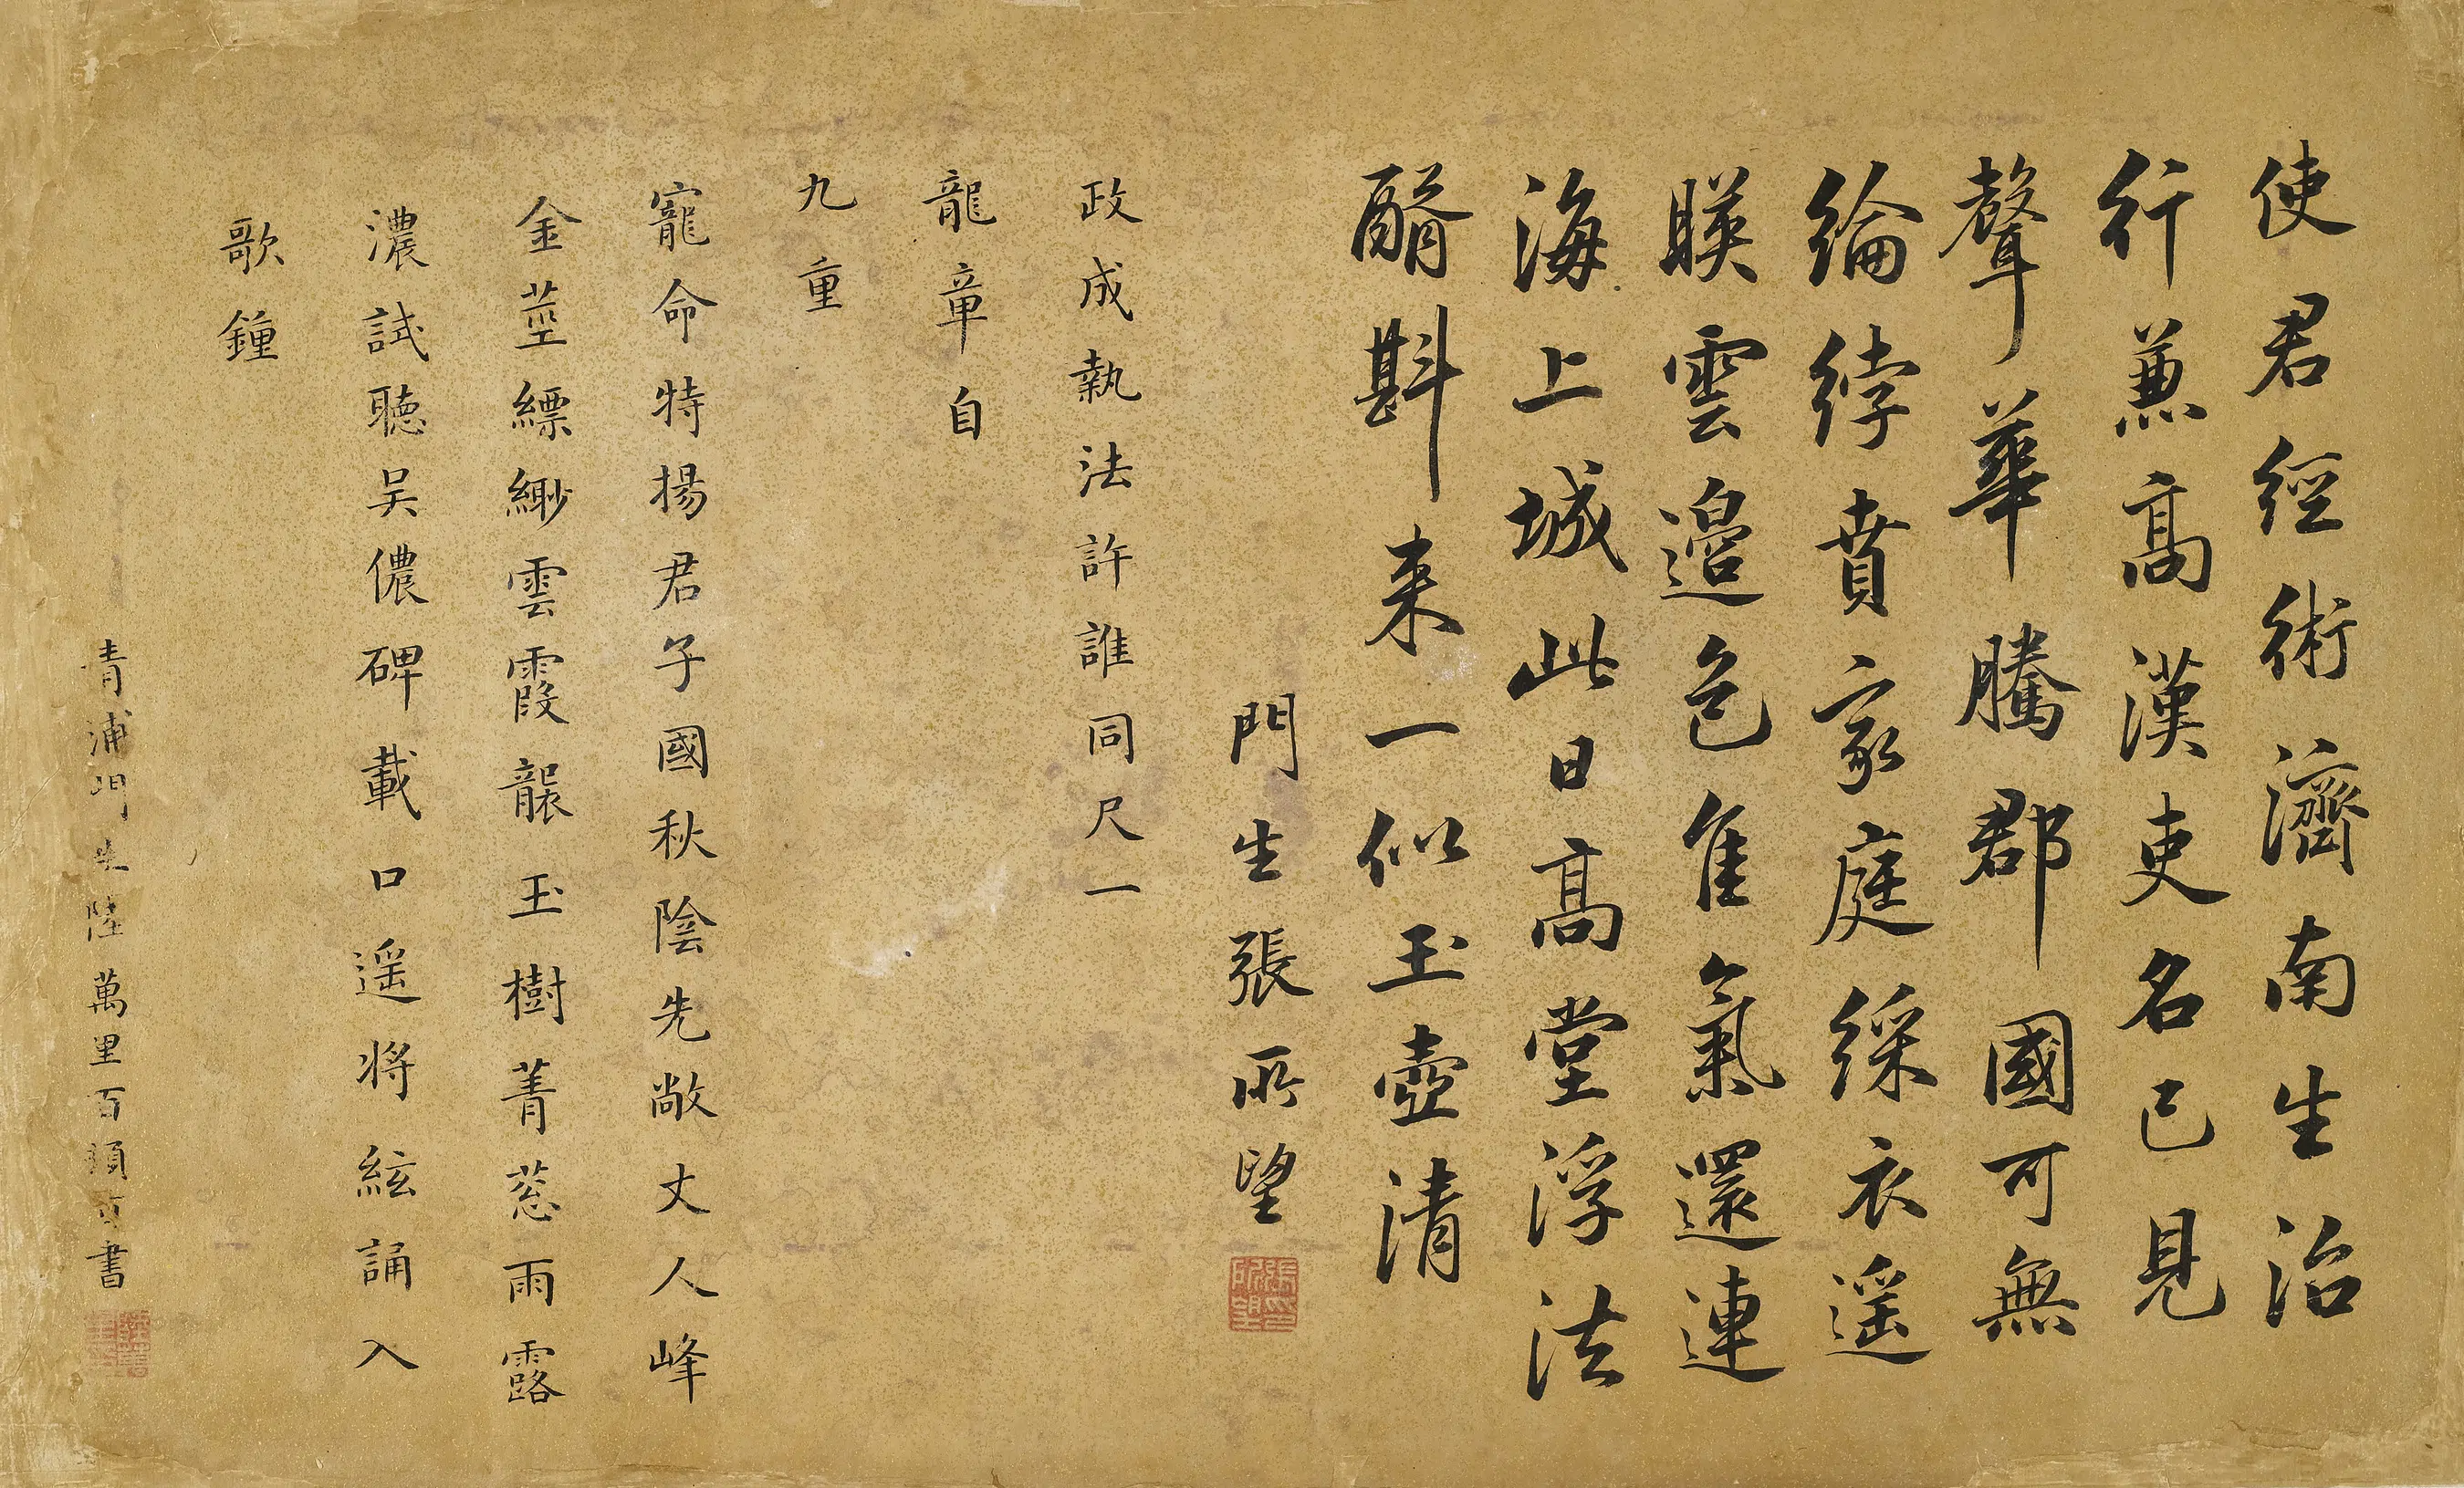 使君經術濟南生治
行兼高漢吏名已見
聲華騰郡國可無
綸綍賁家庭綵衣遥
暎雲邊色隹氣還連
海上城此日高堂浮法
醑斟来一似玉壺清
門生張所望
張所望印
政成執法許誰同尺一
龍章自
九重
寵命特揚君子國秋陰先敞丈人峰
金莖縹緲雲霞襲玉樹菁葱雨露
濃試聽吴儂碑載口遥将絃誦入
歌鐘
青浦門生陸萬里百頓首書